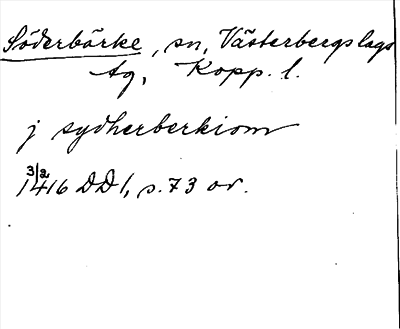 Söderbärke, sn, Västerbergslags
tg, Kopp. l.
j sydherberkiom
3/2
1416 DD 1, s. 73 or.